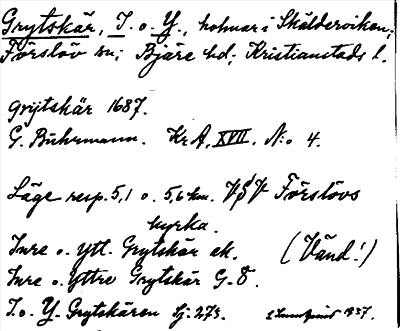 Grytskär, I. o. Y., holmar i Skälderviken;
Förslöv sn; Bjäre hd; Kristianstads l.
Grytskär 1687.
G. Buhrmann. KrA, XVII. N:o 4.
Läge resp. 5,1 o. 5,6 km. VSV Förslövs
kyrka.
Inre o. Ytt. Grytskär ek. (Vänd!)
Inre o. Yttre Grytskär G.
I. o. Y. Grytskären Sj. 273. 1937.